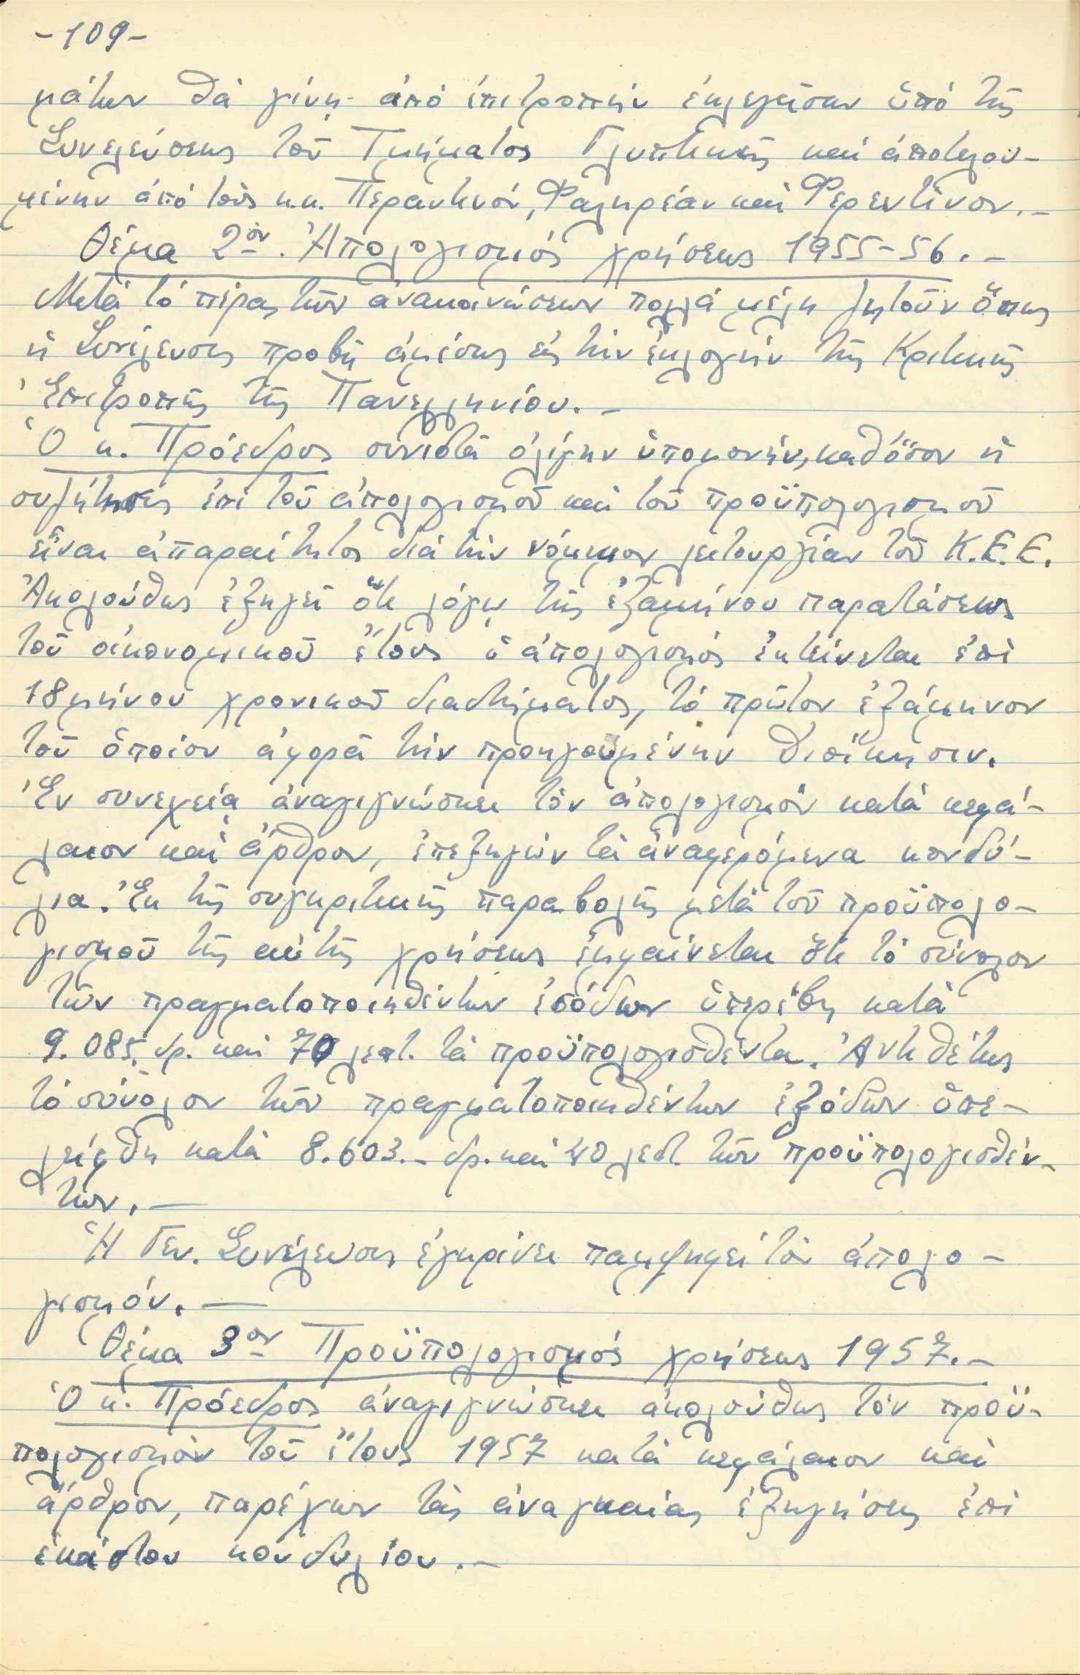 -109-
μάτων θά γίνῃ ἀπό ἐπιτροπήν ἐκλεγεῖσαν ὑπό τῆς
Συνελεύσεως τοῦ Τμήματος Γλυπτικῆς καί ἀποτελου-
μένην ἀπό τούς κ.κ. Περαντινόν, Φαληρέαν καί Φερεντῖνον.-
Θέμα 2ον. Ἀπολογισμός χρήσεως 1955-56.-
Μετά τό πέρας τῶν ἀνακοινώσεων πολλά μέλη ζητοῦν ὅπως
ἡ Συνέλευσις προβῇ ἀμέσως εἰς τήν ἐκλογήν τῆς Κριτικῆς
Ἐπιτροπῆς τῆς Πανελληνίου.-
Ὁ κ. Πρόεδρος συνιστᾶ ὀλίγην ὑπομονήν, καθόσον ἡ
συζήτησις ἐπί τοῦ ἀπολογισμοῦ καί τοῦ προϋπολογισμοῦ
εἶναι ἀπαραίτητος διά τήν νόμιμον λειτουργίαν τοῦ Κ.Ε.Ε.
Ἀκολούθως ἐξηγεῖ ὅτι λόγῳ τῆς ἑξαμήνου παρατάσεως
τοῦ οἰκονομικοῦ ἔτους ὁ ἀπολογισμός ἐκτείνεται ἐπί
18μήνου χρονικοῦ διαστήματος, τό πρῶτον ἑξάμηνον
τοῦ ὁποίου ἀφορᾶ τήν προηγουμένην διοίκησιν.
Ἐν συνεχείᾳ ἀναγιγνώσκει τόν ἀπολογισμόν κατά κεφά-
λαιον καί ἄρθρον, ἐπεξηγῶν τά ἀναφερόμενα κονδύ-
λια. Ἐκ τῆς συγκριτικῆς παραβολῆς μετά τοῦ προϋπολο-
γισμοῦ τῆς αὐτῆς χρήσεως ἐμφαίνεται ὅτι τό σύνολον
τῶν πραγματοποιηθέντων ἐσόδων ὑπερέβη κατά
9.085. δρ. καί 70 λεπτ. τά προϋπολογισθέντα. Ἀντιθέτως
τό σύνολον τῶν πραγματοποιηθέντων ἐξόδων ὑπε-
λείφθη κατά 8.603.- δρ. καί 40 λεπτ. τῶν προϋπολογισθέν-
των.-
Ἡ Γεν. Συνέλευσις ἐγκρίνει παμψηφεί τόν ἀπολο-
γισμόν.-
Θέμα 3ον Προϋπολογισμός χρήσεως 1957.-
Ὁ κ. Πρόεδρος ἀναγιγνώσκει ἀκολούθως τόν προϋ-
πολογισμόν τοῦ ἔτους 1957 κατά κεφάλαιον καί
ἄρθρον, παρέχων τάς ἀναγκαίας ἐξηγήσεις ἐπί
ἑκάστου κονδυλίου.-